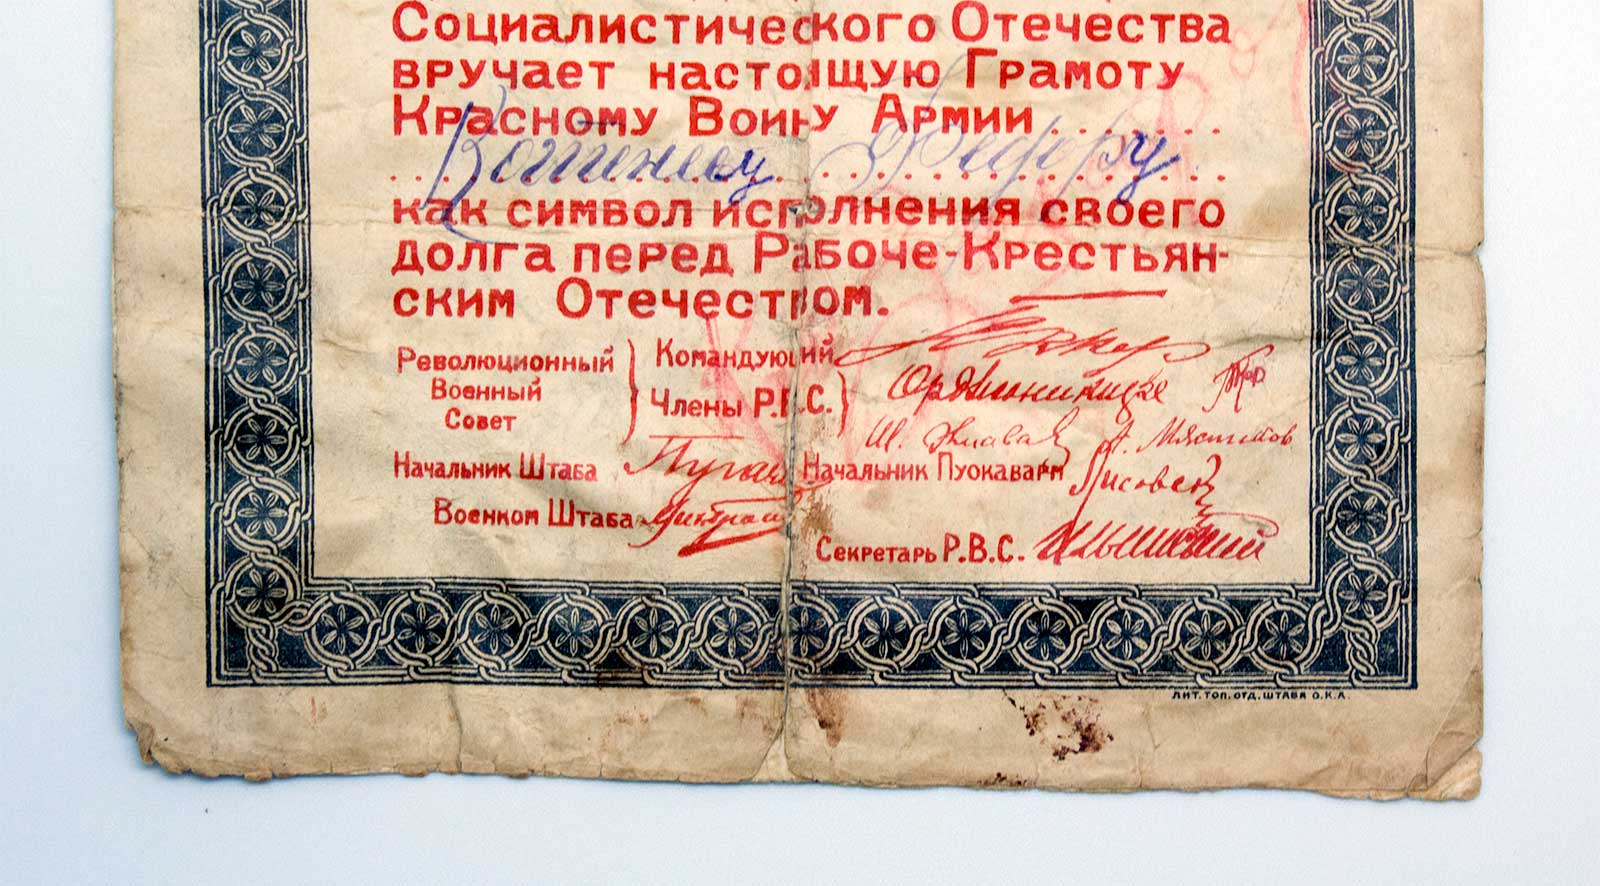 Социалистического Отечества
вручает настоящую Грамоту
Красному Воину Армии
Федору
как символ исполнения своего
долга перед Рабоче-Крестьян-
ским Отечеством.
Революционный
Военный
Совет
Командующий
Члены Р.В.С.
Орджоникидзе
Ш. Элиава А. Мясников
Начальник Штаба Пугачев
Начальник Пуокаварм
Военком Штаба
Секретарь Р.В.С.
ЛИТ. ТОП. ОТД. ШТАБА О.К.А.